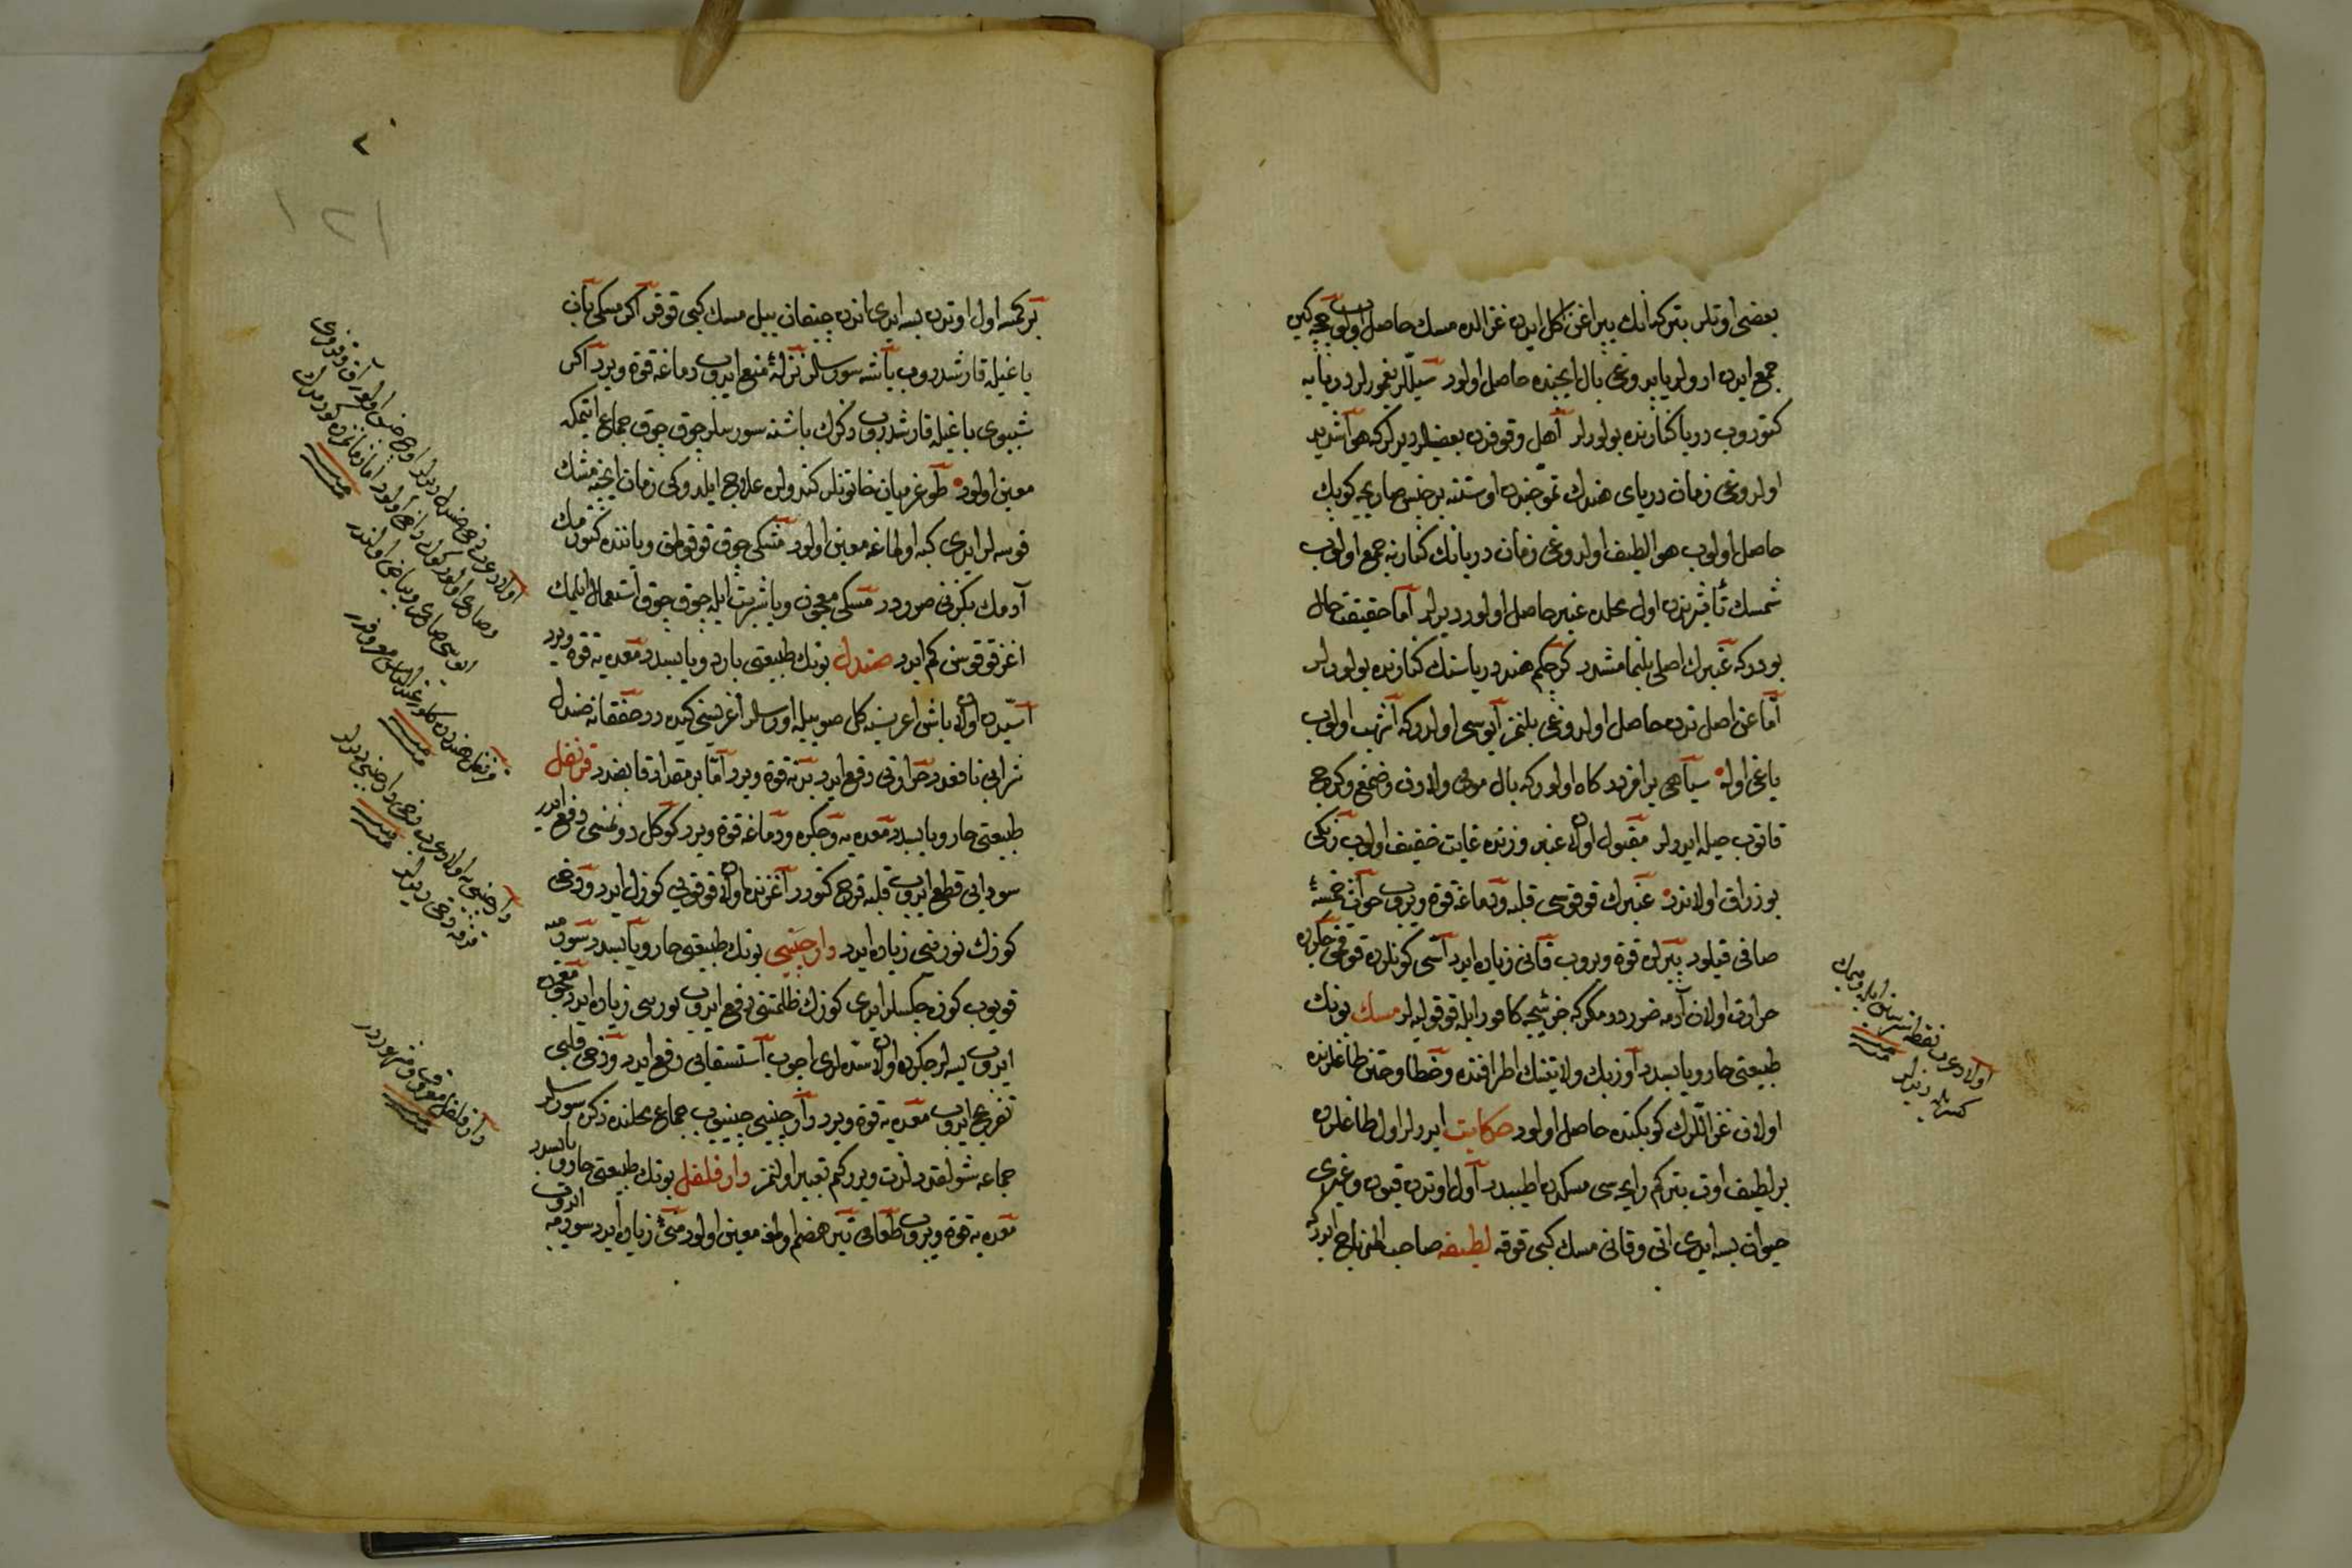 بعضی اوتلر بتر که انك یپراغن اکل ایدن غزالده مسك حاصل اولوب
جمع ایدن اولر یاپدوغی بال ایچنده حاصل اولور سیللر یغمورلر دریایه
کتوروب دریا کنارنده بولورلر اهل وقوفدن بعضلر دیرلر که هوا شدید
اولدوغی زمان دریای هندك تموجندن اوستنه بر جنس صاریجه کوپك
حاصل اولوب هوا لطیف اولدوغی زمان دریانك کنارنه جمع اولوب
شمسك تأثیرندن اول محلده عنبر حاصل اولور دیرلر اما حقیقت حال
بودر که عنبرك اصلی بلنمامشدر کرچکم هند دریاسنك کنارنده بولورلر
اما عن اصل ندن حاصل اولدوغی بلنمز ایوسی اولدر که اشهب اولوب
یاغی اوله سیاهی بر افزدر کاه اولور که بال مومی ولادن وضمغ وکرج
قاتوب حیله ایدرلر مقبول اولان عنبر وزنده غایت خفیف اولوب رنکی
بوزراق اولاندر عنبرك قوقوسی قلبه ودماغه قوة ویروب حواس خمسۀ
صافی قیلور پیرلره قوة ویروب قانی زیاده ایدر اسی کونلرده
حرارت اولان آدمه ضرردر مکر که جزئیجه کافور ایله قوقولیه لر مسك بونك
طبیعتی حار ویابسدر اوزبك ولایتنك اطرافنده وخطا وختن طاغلرنده
اولان غزاللرك کوبکنده حاصل اولور حکایت ایدرلر اول طاغلرده
بر لطیف اوت بتر کم رایحه سی مسکدن اطیبدر اول اوتدن قیون وغیری
حیوان یسه ایدی اتی وقانی مسك کبی قوقه لطیفه صاحب المنهاج ایدر که
اولادعرب
دیرلر
بر کمسه اول اوتدن یسه ایدی اندن چیقان ییل مسك کبی قوقر اکر مسکی بان
یاغیله قارشدروب باشه سورسلر نزلۀ منع ایدوب دماغه قوة ویرر اکر
شببوی یاغیله قارشدروب ذکرك باشنه سورسلر چوق چوق جماع ایتمکه
معین اولور طوغرمیان خاتونلر کندولره علاج ایلدوکی زمان ایچنه مشك
قوسه لر ایدی کبه اولمغه معین اولور مشکی چوق قوقولمق ویاننده کتورمك
آدمك بکزنی صرورر مسکی معجون ویا شربت ایله چوق چوق استعمال ایلمك
اغز قوقوسن کم ایدر صندل بونك طبیعتی بارد ویابسدر معده یه قوة ویرر
اسیدن اولان باش اغریسنه کل صوییله اورسلر اغریسنی کیدرر خفقانه صندل
شرابی نافعدر حرارتی دفع ایدر بدنه قوة ویرر اما بر مقدار قابضدر قرنفل
طبیعتی حار ویابسدر معده یه وجکره ودماغه قوة ویرر کوکل دونمسنی دفع ایدر
سودایی قطع ایدوب قلبه فرح کتورر آغزنده اولان قوقویی کوزل ایدر ودخی
کوزك نورینی زیاده ایدر دارچینی بونك طبیعتی حار ویابسدر
قویوب کوزه چکسلر ایدی کوزك ظلمتنی دفع ایدوب نورینی زیاده ایدر معجون
ایدوب یسه لر جکرده اولان سدّه لری اچوب استسقایی دفع ایدر ودخی قلبی
تفریح ایدوب معده یه قوة ویرر دارچینی چینیوب جماع محلنده ذکره سورسلر
جماعه شولقدر لذت ویرر کم تعبیر اولنمز دار فلفل بونك طبیعتی حار ویابسدر
معده یه قوة ویروب طعامی تیز هضم اولمغه معین اولور منیٔ زیاده ایدر
قرنفل هنددن کلور عند الناس معروفدر
دارچینی یه اولادعرب دخی دارصینی دیرلر
قرفه دخی دیرلر
دار فلفل معروف ومشهوردر
٢
١٢١